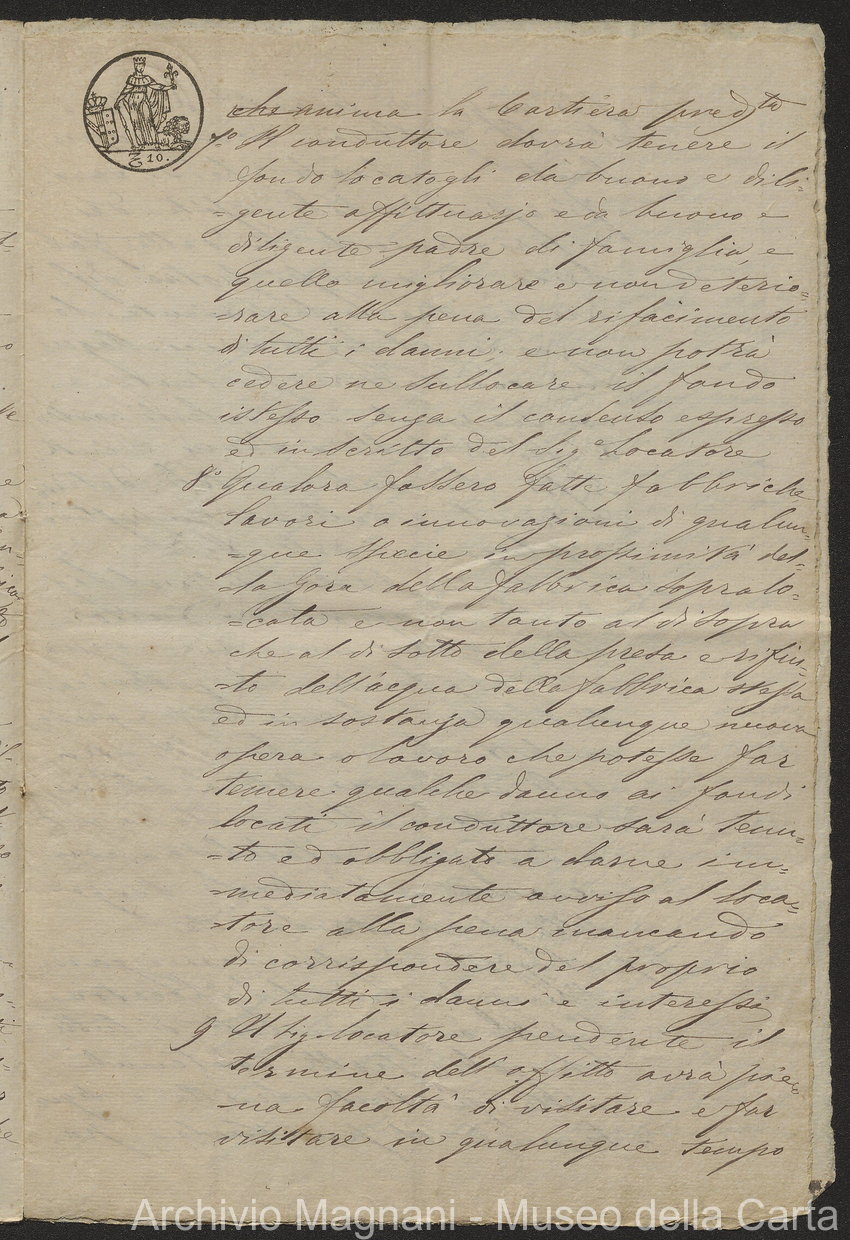 10.
che anima la Cartiera pred.ta
7.o Il conduttore dovrà tenere il
fondo locatogli da buono e dili=
=gente affittuasjo e da buono e
diligente padre di famiglia, e
quello migliorare e non deterio=
=rare alla pena del rifacimento
di tutti i danni. e non potrà
cedere ne sullocare il fondo
istesso senza il consenso espresso
ed in scritto del Sig.e Locatore
8.o Qualora fossero fatte fabbriche
lavori o innovazioni di qualun=
=que specie in prossimità del=
=la Gora della fabbrica sopralo=
=cata e non tanto al di sopra
che al di sotto della presa e rifiu=
=to dell'acqua della fabbrica stessa
ed in sostanza qualunque nuova
opera o lavoro che potesse far
temere qualche danno ai fondi
locati il conduttore sarà tenu=
=to ed obbligato a darne im=
=mediatamente avviso al loca=
=tore alla pena mancando
di corrispondere del proprio
di tutti i danni e interessi
9 Il Sig. locatore pendente il
termine dell'affitto avrà pie=
=na facoltà di visitare e far
visitare in qualunque tempo
Archivio Magnani - Museo della Carta